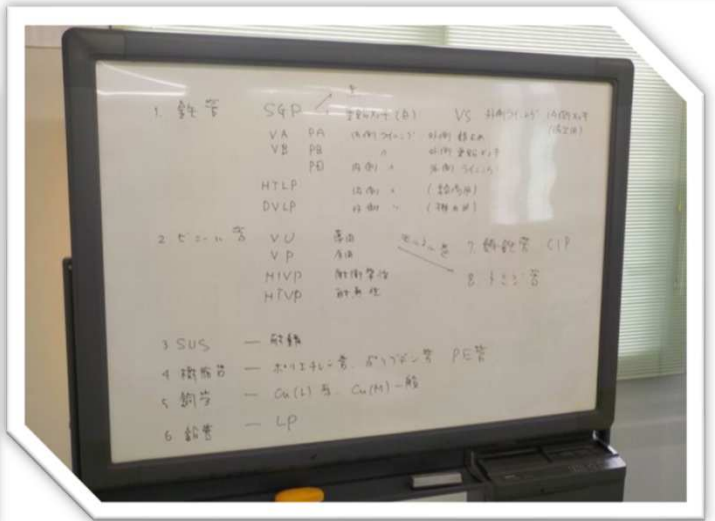 1. 鉄管 SGP 亜鉛メッキ(白) VS 外側ライニング 内側メッキ
VA PA 内側ライニング 外側 錆止め
VB PB 〃 外側 亜鉛メッキ
PD 内側 〃 外側 ライニング
HTLP 内側 〃 (給湯用)
DVLP 内側 〃 (排水用)
2 ビニール管 VU 薄肉
VP 厚肉
HIVP 耐衝撃性
HTVP 耐熱性
7. 鋳鉄管 CIP
8. トミジ管
3 SUS — 
4 樹脂管 — ポリエチレン管、ポリブデン管 PE管
5 銅管 — Cu(L) Cu(M) 一般
6 鉛管 — LP